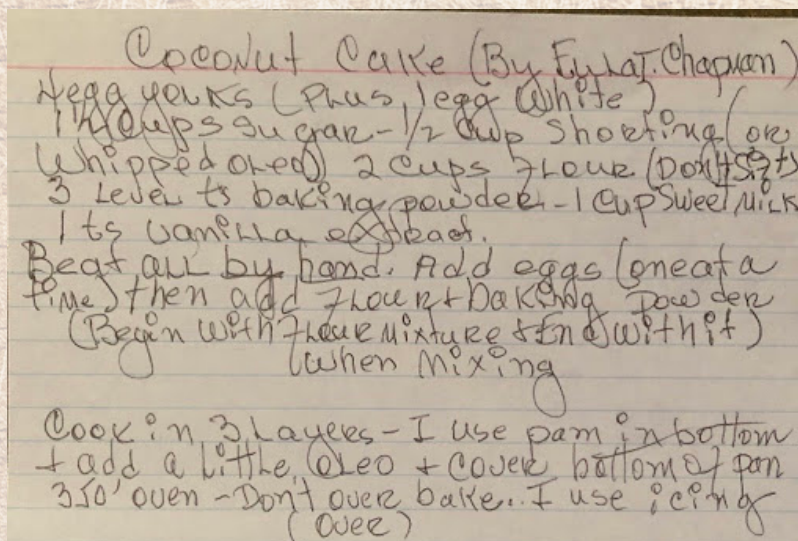 Coconut Cake (By Eula T. Chapman)
4 egg yolks (Plus 1 egg white)
1 1/2 cups sugar - 1/2 cup shorting (or
whipped oleo) 2 cups flour (Don't sift)
3 Level ts baking powder - 1 cup sweet milk
1 ts vanilla extract.
Beat all by hand. Add eggs (one at a
time) then add flour + baking powder
(Begin with flour mixture + End with it)
(when mixing
Cook in 3 layers - I use pam in bottom
+ add a little oleo + cover bottom of pan
350° oven - Don't over bake.. I use icing
(over)